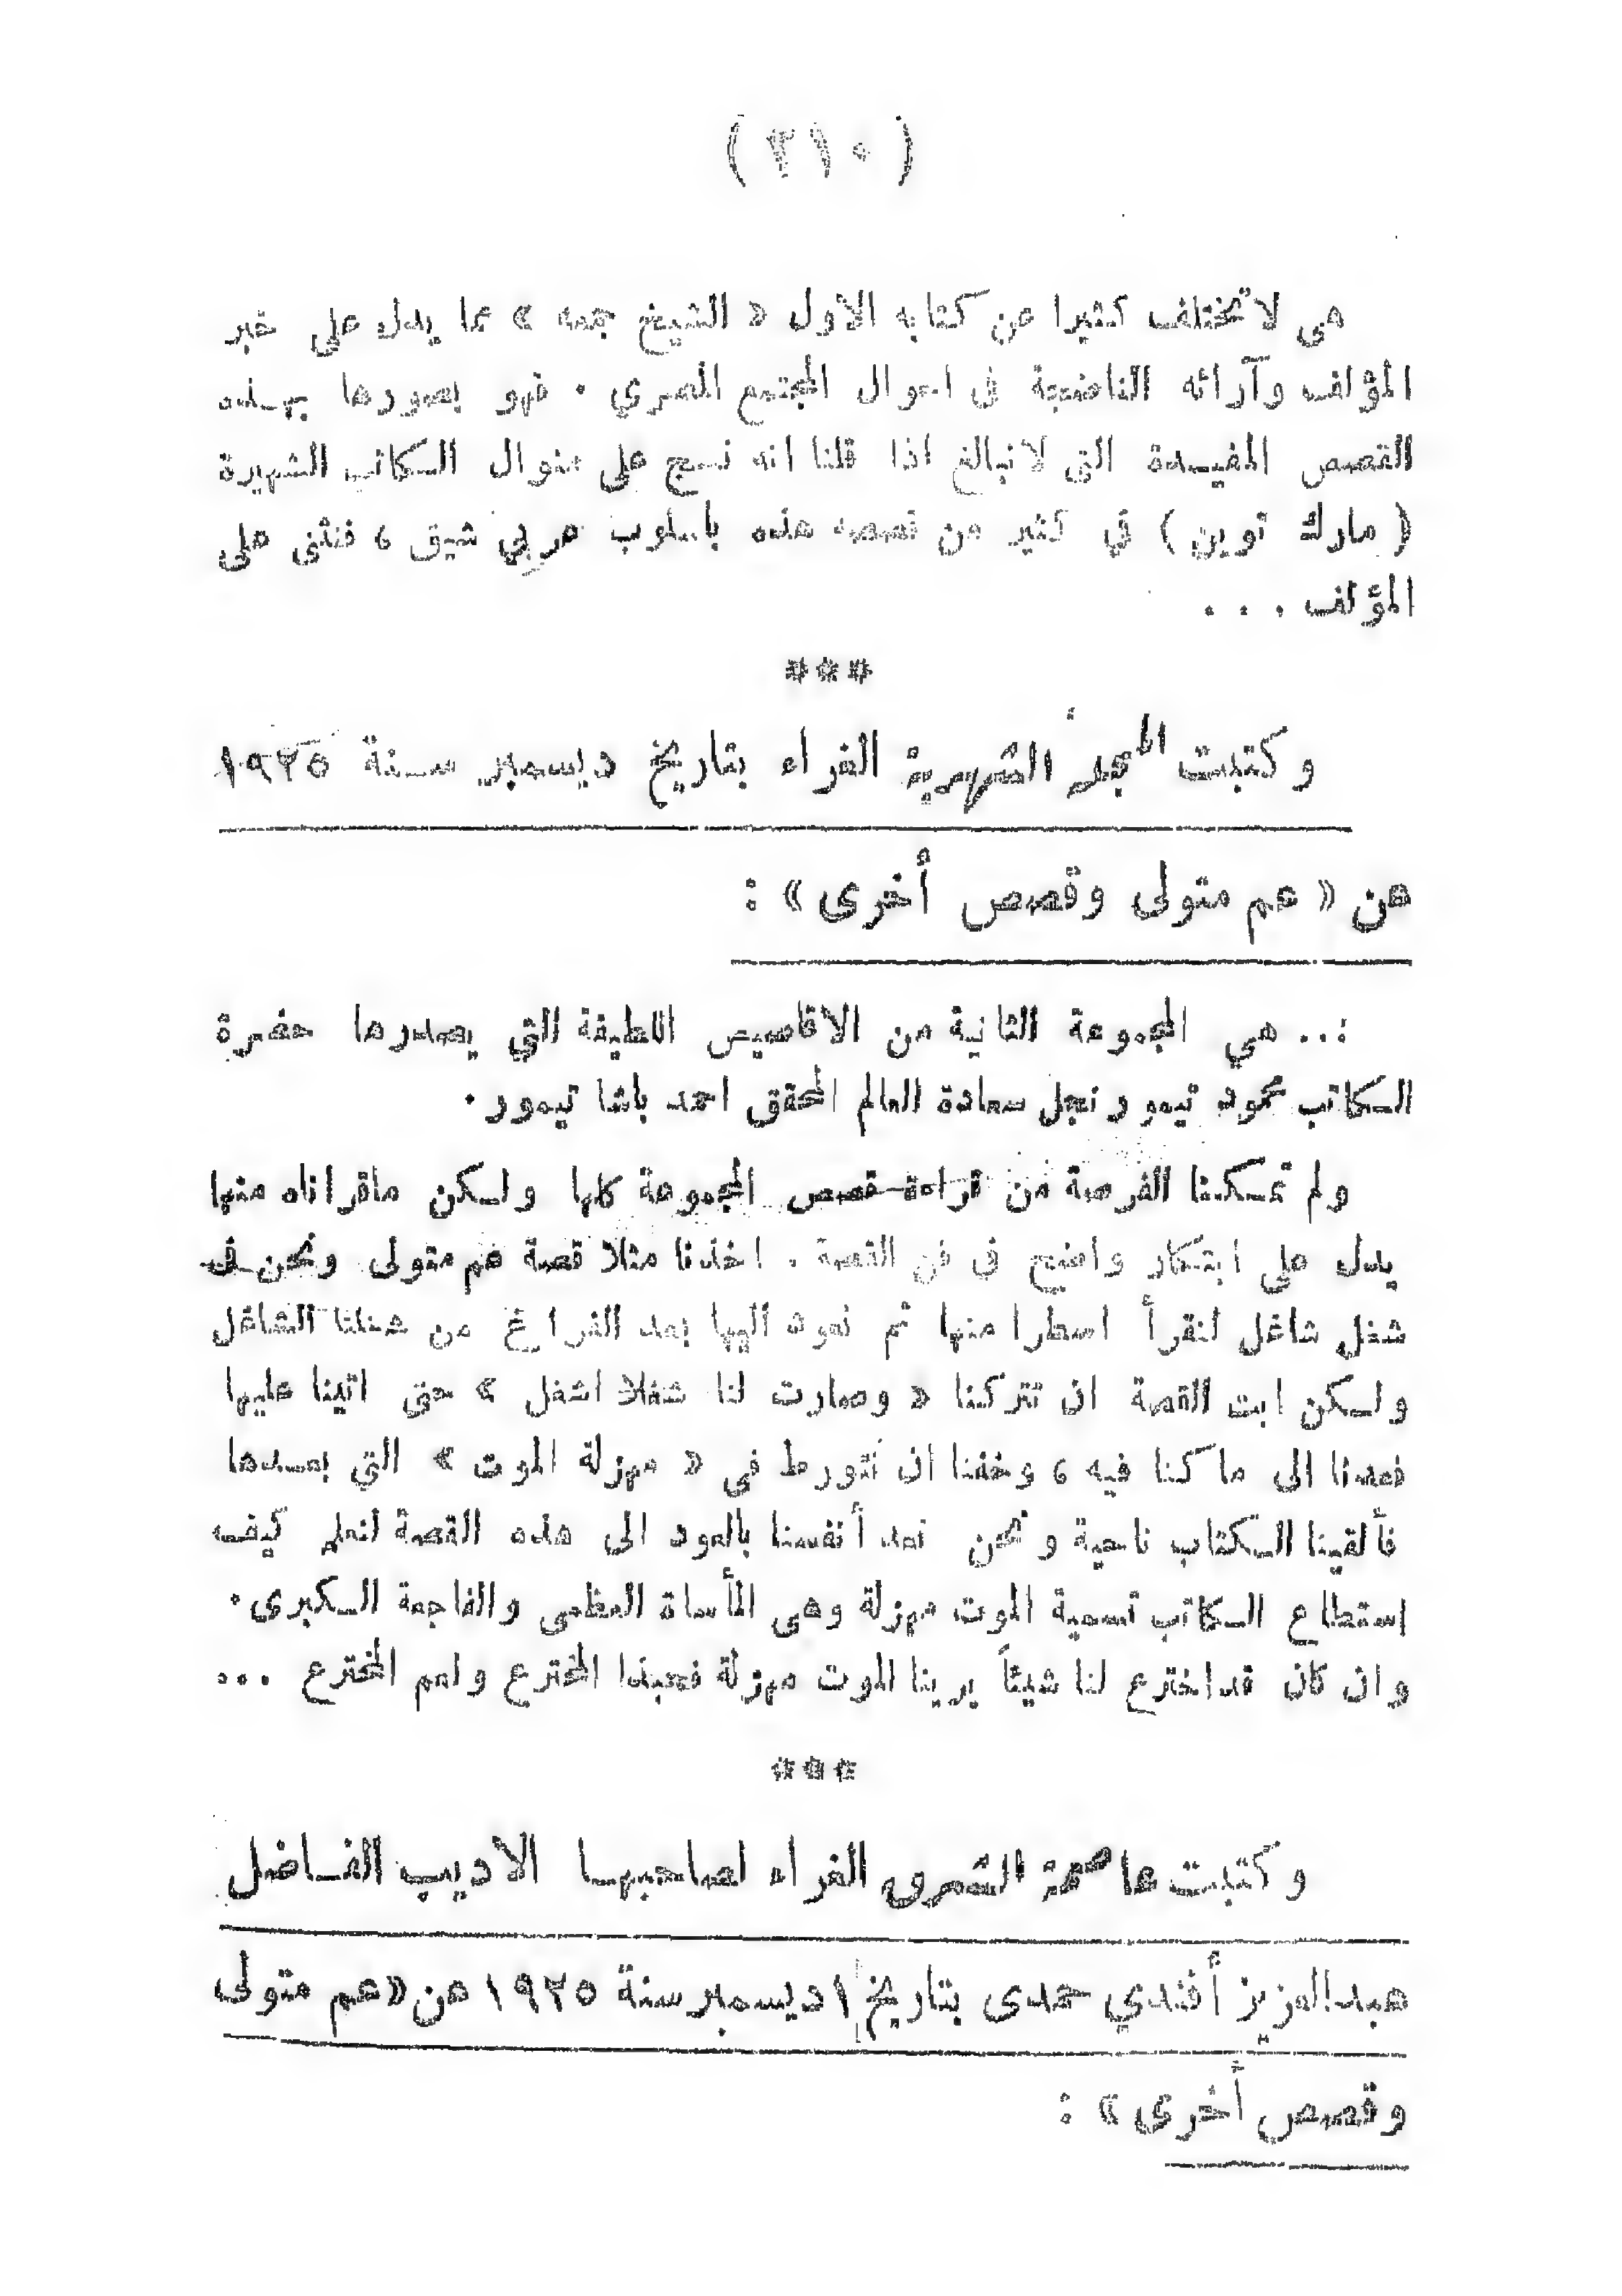 ( ٢١٠ )
هى لا تختلف كثيرا عن كتابه الاول « الشيخ جمعه » مما يدل على خبر
المؤلف وآرائه الناضجة فى احوال المجتمع المصري . فهو يصورها بهـذه
القصص المفيـدة التى لا نبالغ اذا قلنا انه نسج على منوال الـكاتب الشهيرة
( مارك توين ) في كثير من قصصه هذه باسلوب عربي شيق ، فنثنى على
المؤلف . . .
***
وكتبت المجلة الشهرية الغراء بتاريخ ديسمبر سـنة ١٩٢٥
عن « عم متولى وقصص أخرى » :
... هي المجموعة الثانية من الاقاصيص اللطيفة التي يصدرها حضرة
الـكاتب محمود تيمور نجل سعادة العالم المحقق احمد باشا تيمور .
ولم تمـكنا الفرصة من قراءة قصص المجموعة كلها ولـكن ماقراناه منها
يدل على ابتكار واضح فى فن القصة . اخذنا مثلا قصة عم متولى ونحن فى
شغل شاغل لنقرأ اسطرا منها ثم نعود اليها بعد الفراغ من شغلنا الشاغل
ولـكن ابت القصة ان تتركنا « وصارت لنا شغلا اشغل » حتى اتينا عليها
فعدنا الى ما كنا فيه ، وخفنا ان نتورط فى « مهزلة الموت » التي بعـدها
فألقينا الـكتاب ناحية ونحن نعد أنفسنا بالعود الى هذه القصة لنعلم كيف
استطاع الـكاتب تسمية الموت مهزلة وهى المأساة العظمى والفاجعة الـكبرى .
وان كان قد اخترع لنا شيئاً يرينا الموت مهزلة فحبذا المخترع ولعم المخترع ...
***
وكتبت عاصمة الشرق الغراء لصاحبهـا الاديب الفـاضل
عبد العزيز أفندي حمدى بتاريخ ١ ديسمبر سنة ١٩٢٥ عن « عم متولى
وقصص أخرى » :